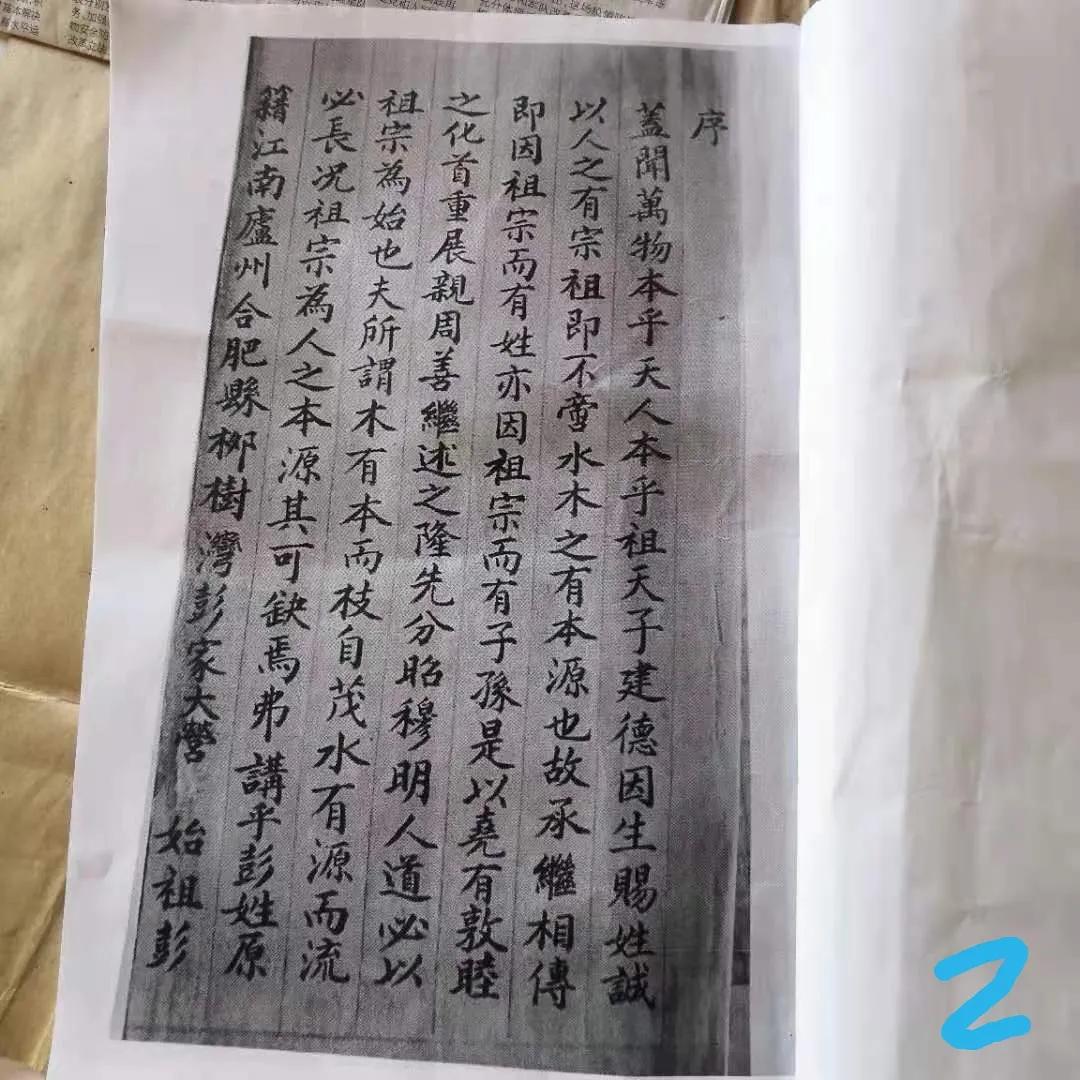 序
蓋聞萬物本乎天人本乎祖天子建德因生賜姓誠
以人之有宗祖即不啻水木之有本源也故承繼相傳
即因祖宗而有姓亦因祖宗而有子孫是以堯有敦睦
之化首重展親周善繼述之隆先分昭穆明人道必以
祖宗為始也夫所謂木有本而枝自茂水有源而流
必長况祖宗為人之本源其可缺焉弗講乎彭姓原
籍江南廬州合肥縣栁樹灣彭家大營 始祖彭
2